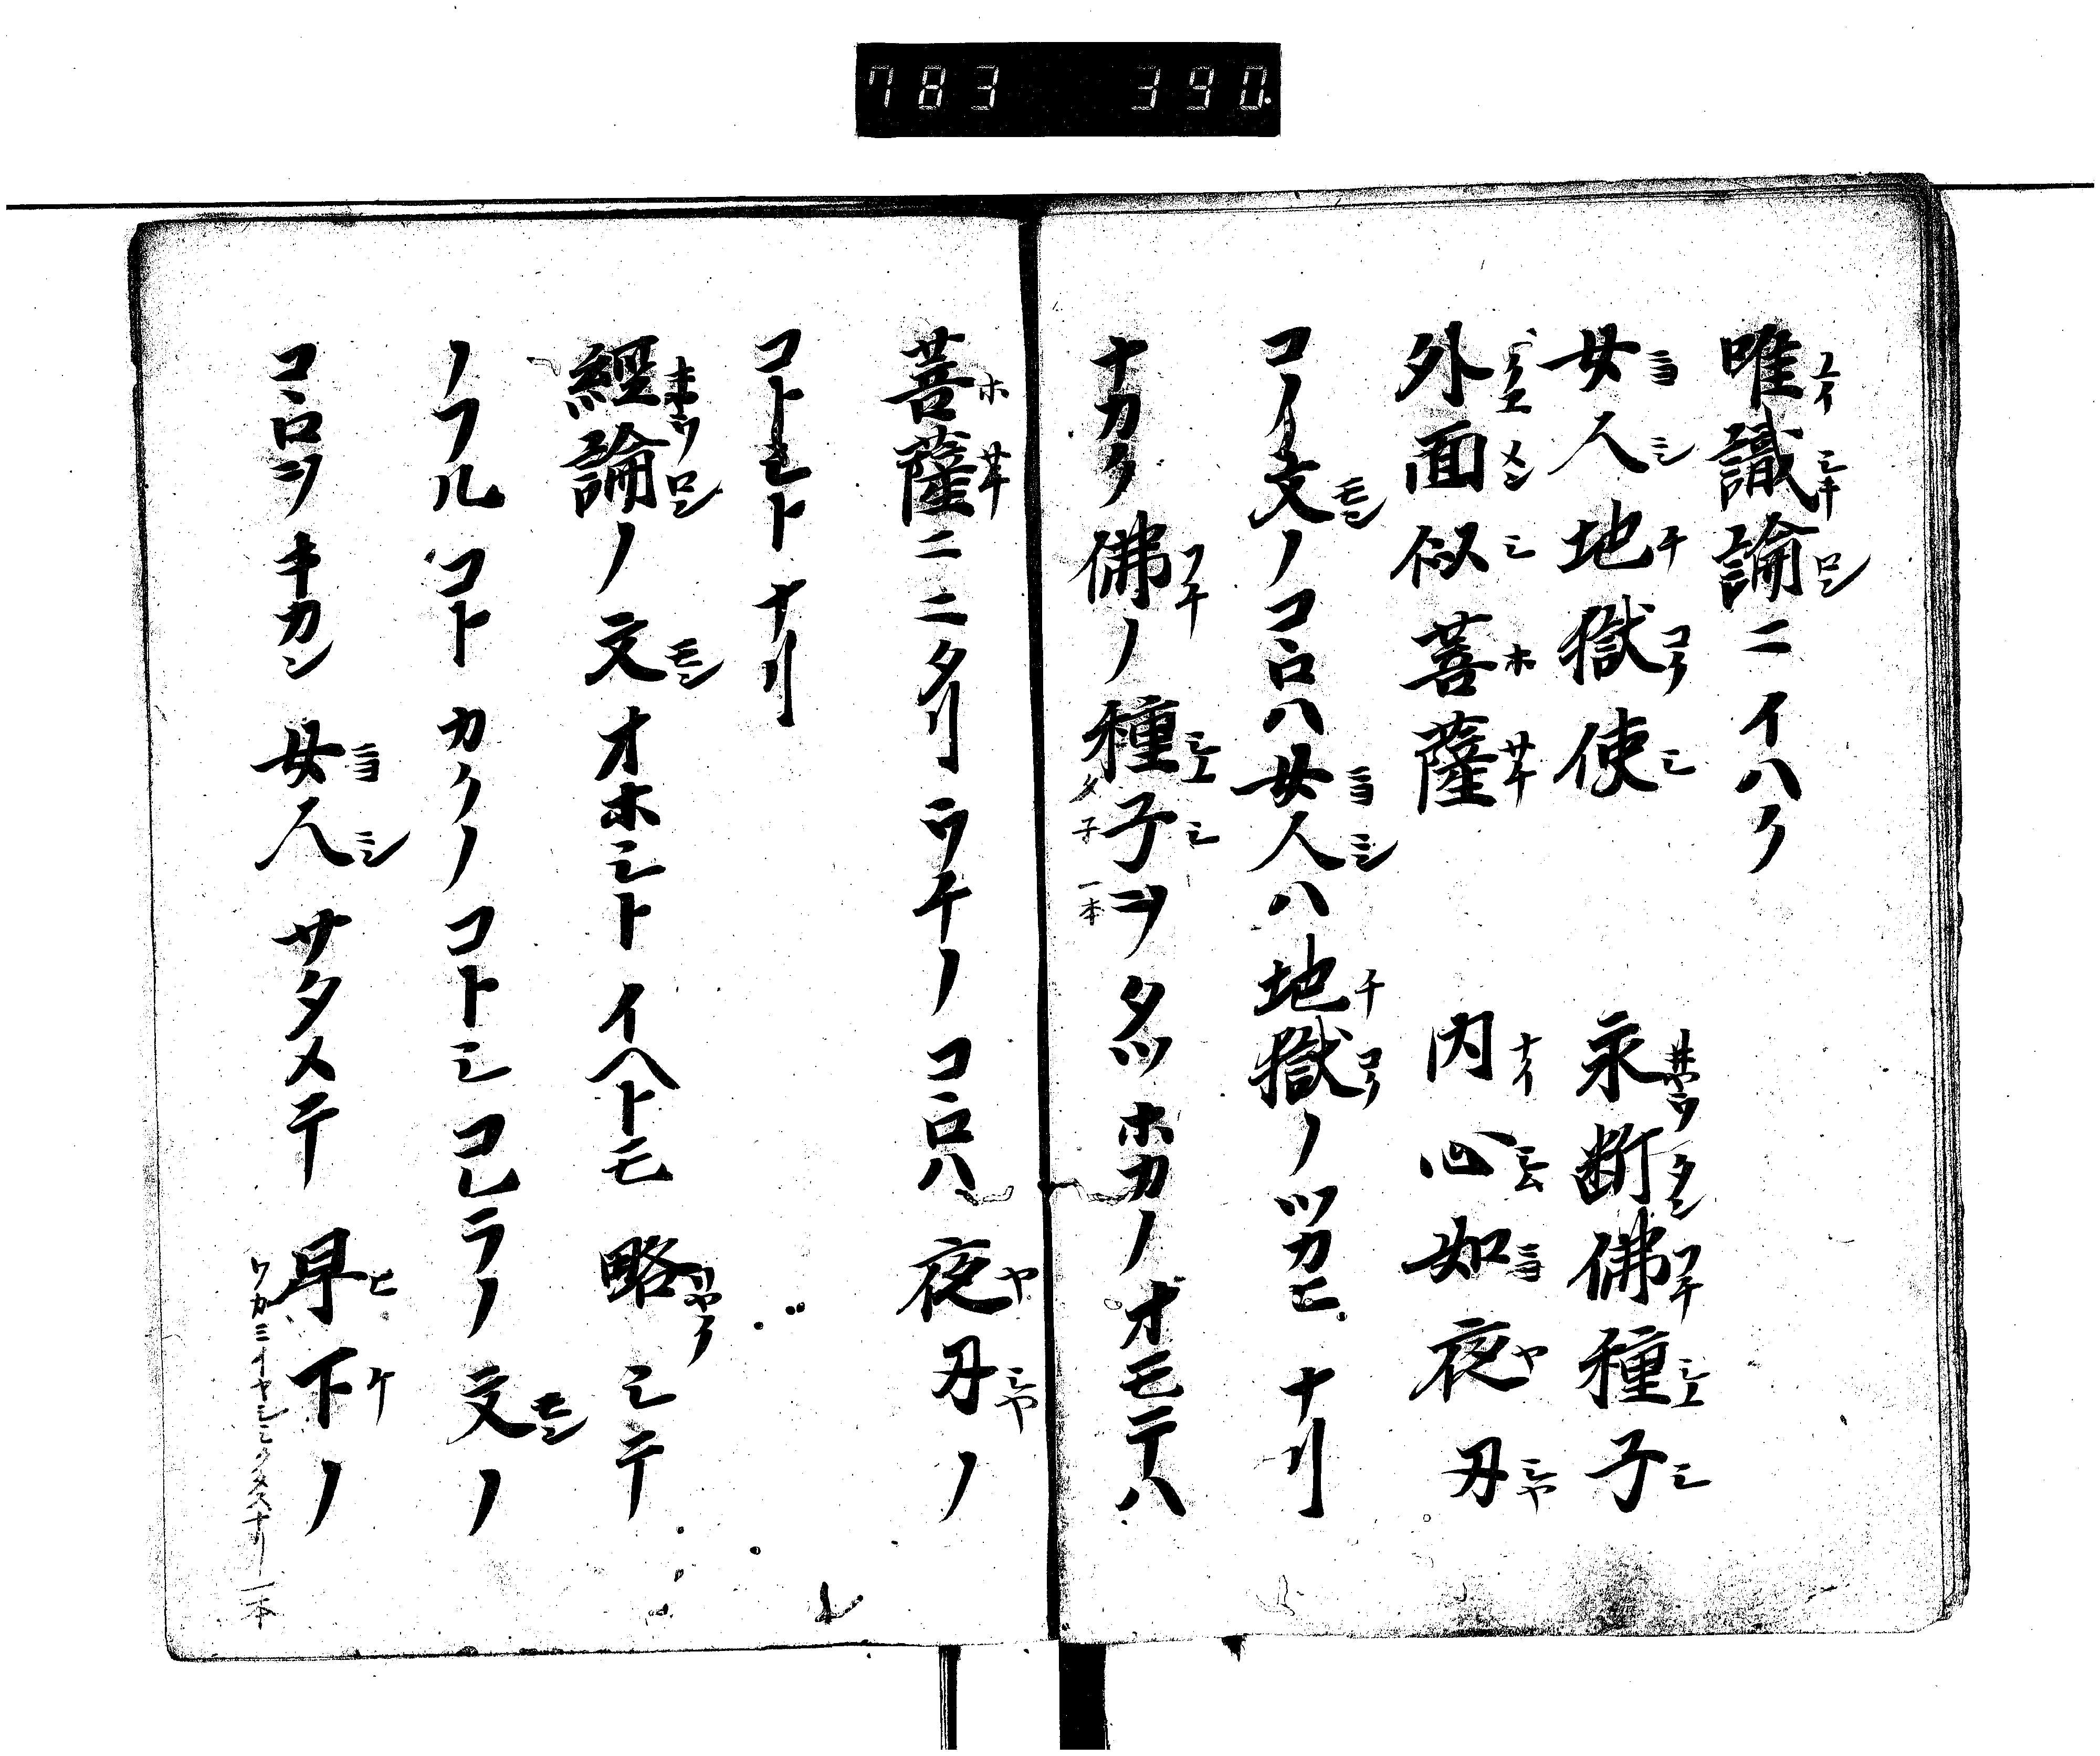 783 390.
唯識論ニイハク
女人地獄使 永断佛種子
外面似菩薩 内心如夜叉
コノ文ノコヽロハ女人ハ地獄ノツカヒナリ
ナカク佛ノ種子ヲタツホカノオモテハ
タ子 一本
菩薩ニニタリウチノコヽロハ夜叉ノ
コトシトナリ
經論ノ文オホシトイヘトモ略シテ
ノフルコトカクノコトシコレラノ文ノ
コヽロヲキカン女人サタメテ卑下ノ
ワカミイヤシミ
一本